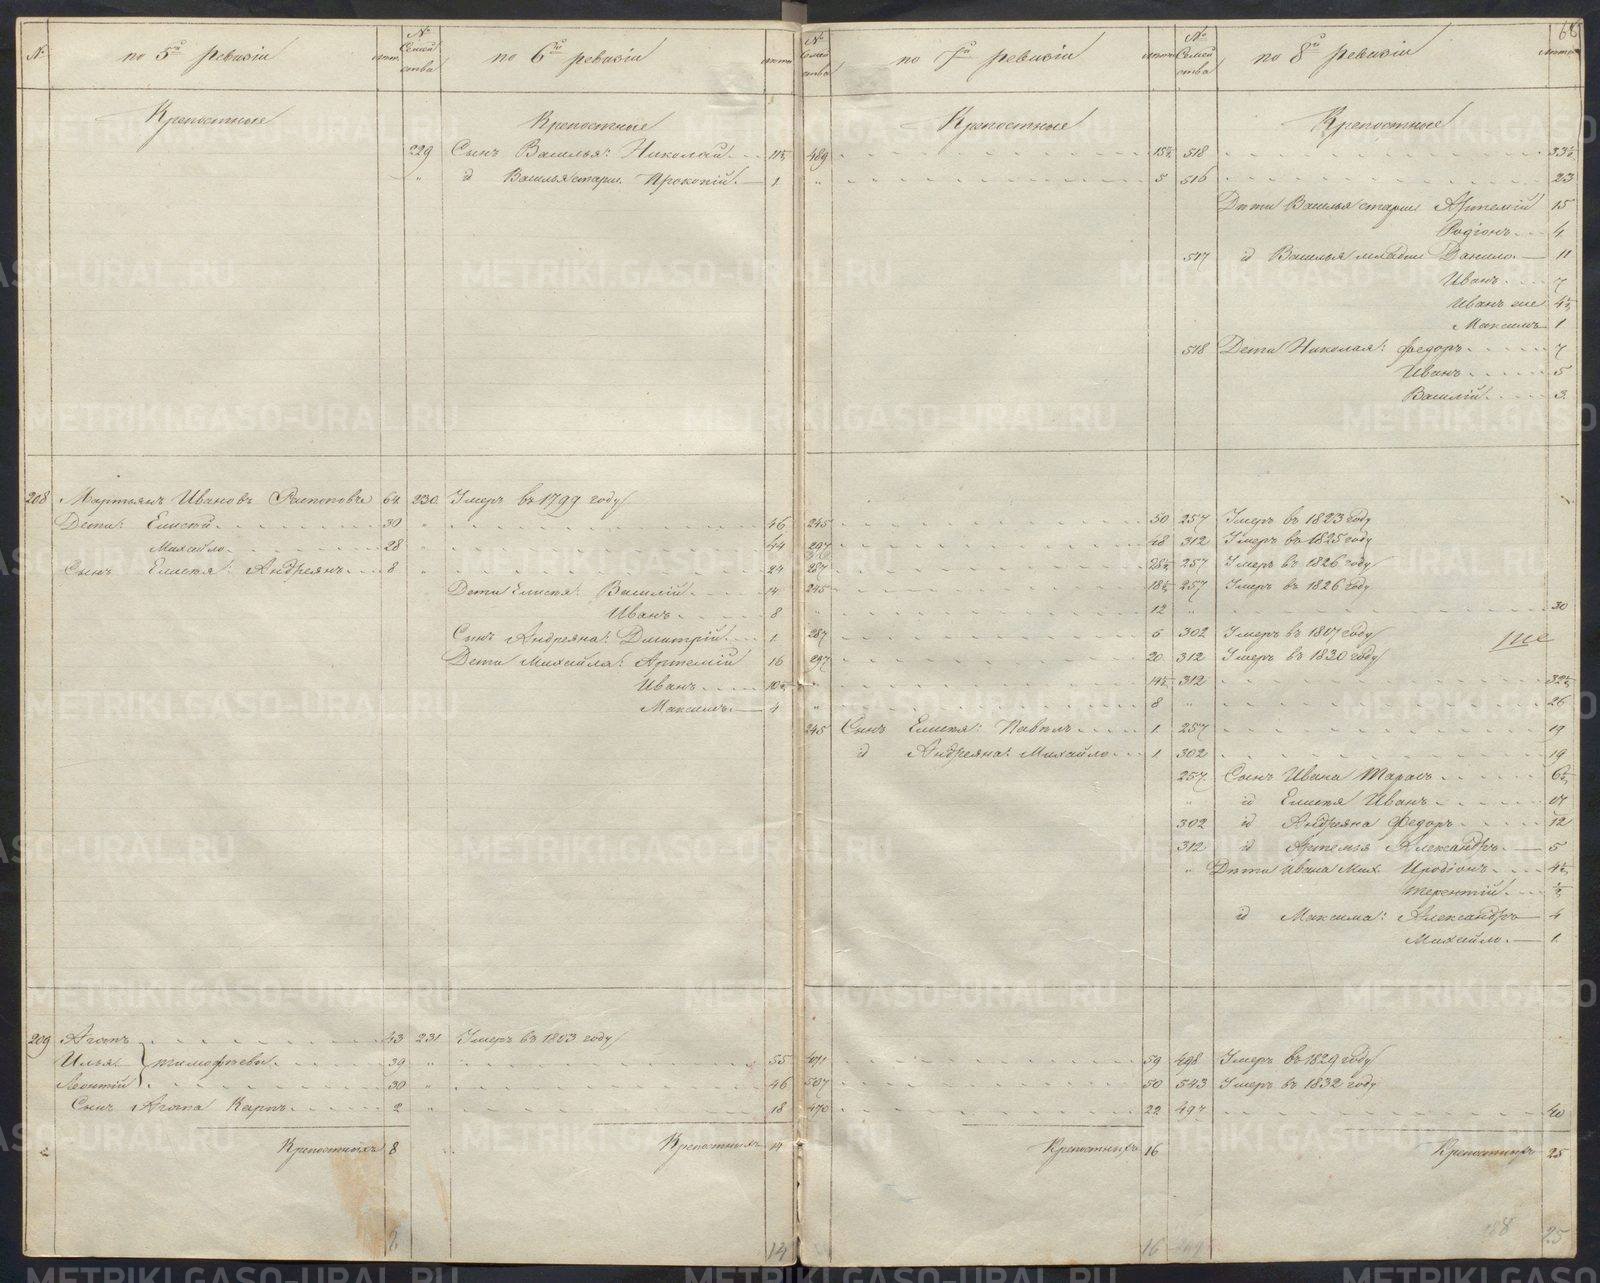 66
№ по 5й ревизіи лѣты № Семейства по 6й ревизіи лѣты № Семейства по 7й ревизіи лѣты № Семейства по 8й ревизіи лѣты
Крепостные Крепостные Крепостные Крепостные
229 Сынъ Василья: Николай 11½ 489 15½ 518 33½
" id Василья старш. Прокопій 1 " 5 516 23
Дѣти Василья старш Артемій 15
Родіонъ 4
517 id Василья младш Данило 11
Иванъ 7
Иванъ еще 4½
Максимъ 1
518 Дети Николая: Федоръ 7
Иванъ 5
Василій 3
208 Мартьянъ Ивановъ 64 230 Умеръ въ 1799 году
Дети: Елисѣй 30 " 46 245 50 257 Умеръ въ 1823 году
Михайло 28 " 44 297 48 312 Умеръ въ 1825 году
Сынъ Елисѣя: Андреянъ 8 " 24 287 28½ 257 Умеръ въ 1826 году
Дети Елисѣя: Василій 14 245 18½ 257 Умеръ въ 1826 году
Иванъ 8 " 12 " 30
Сынъ Андреяна: Дмитрій 1 287 5 302 Умеръ въ 1807 году
Дети Михайла: Артемій 16 297 20 312 Умеръ въ 1830 году
Иванъ 10½ " 14½ 312 32½
Максимъ 4 " 8 " 26
245 Сынъ Елисѣя: Павелъ 1 257 19
id Андреяна: Михайло 1 302 19
257 Сынъ Ивана Тарасъ 6½
" id Елисѣя Иванъ 17
302 id Андреяна Федоръ 12
312 id Артемья Александръ 5
" Дѣти Ивана Мих. Иродіонъ 4½
Терентій ½
id Максима: Александръ 4
Михайло 1
209 Агапъ 43 231 Умеръ въ 1803 году
Илья } Тимофѣевы 39 " 55 471 59 498 Умеръ въ 1829 году
Леонтій 30 " 46 507 50 543 Умеръ въ 1832 году
Сынъ Агапа Карпъ 2 " 18 470 22 497 40
Крепостныхъ 8 Крепостныхъ 14 Крепостныхъ 16 Крепостныхъ 25
14 16 25
METRIKI.GASO-URAL.RU